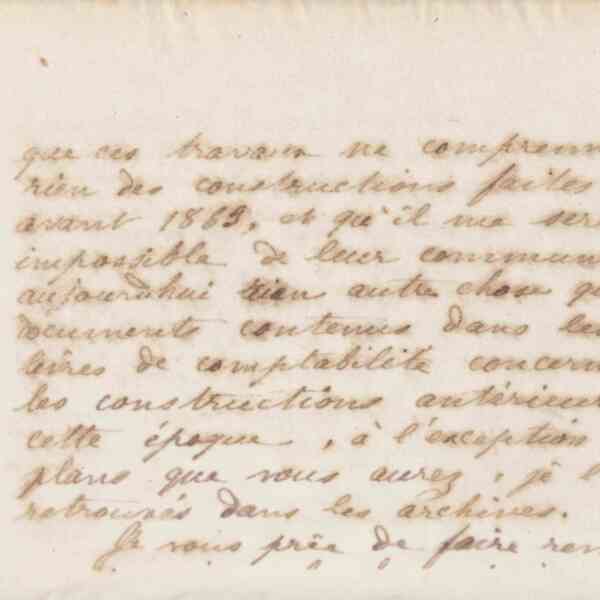 que ces travaux ne comprenn
rien des constructions faites
avant 1863, et qu'il me ser
impossible de leur commun
aujourd'hui rien autre chose q
documents contenus dans les
livres de comptabilité concern
les constructions antérieur
cette époque, à l'exception
plans que vous aurez, je l
retrouvés dans les archives.
Je vous prie de faire rem